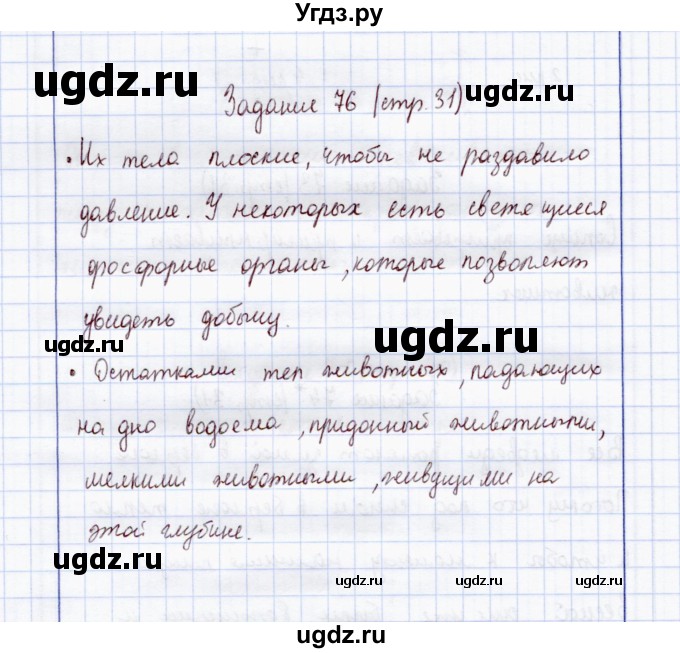 Угдз.ру
ugdz.ru
Задание 76 (стр. 31)
ugdz.ru
• Их тела плоские, чтобы не раздавило
давление. У некоторых есть светящиеся
фросфорные органы, которые позволяют
увидеть добычу.
ugdz.ru
ugdz.ru
• Остатками тел животных, падающих
на дно водоема, придонный животными,
мелкими животными, живущими на
этой глубине.
ugdz.ru
ugdz.ru
ugdz.ru
ugdz.ru
ugdz.ru